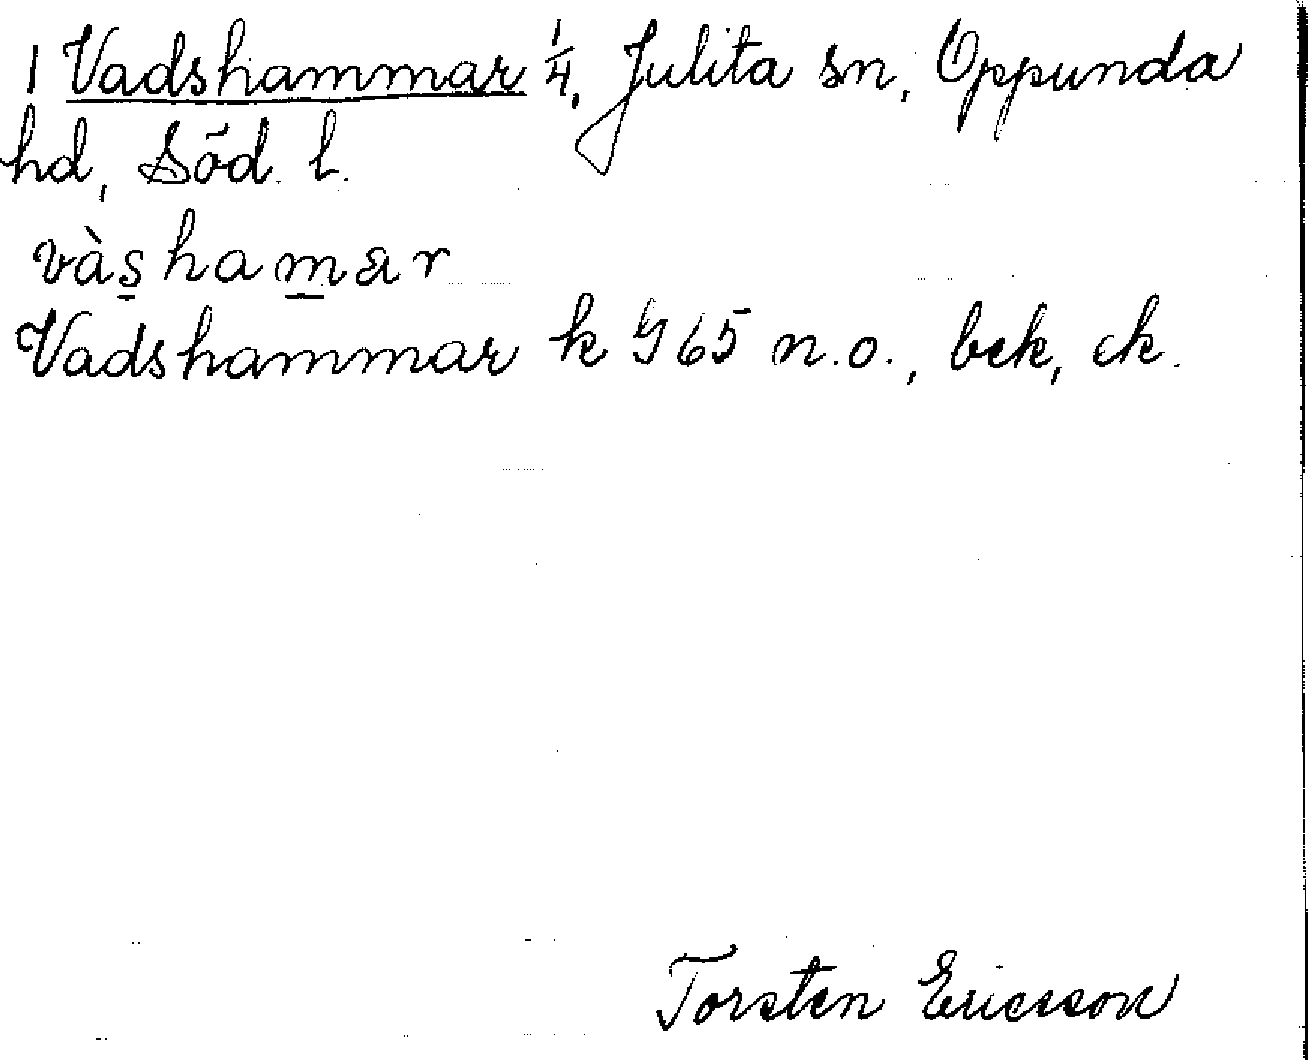 1 Vadshammar 1/4, Julita sn, Oppunda
hd, Söd. l.
vàs̲ham̲ar
Vadshammar k G 65 n.o., bek, ek.
Torsten Ericsson